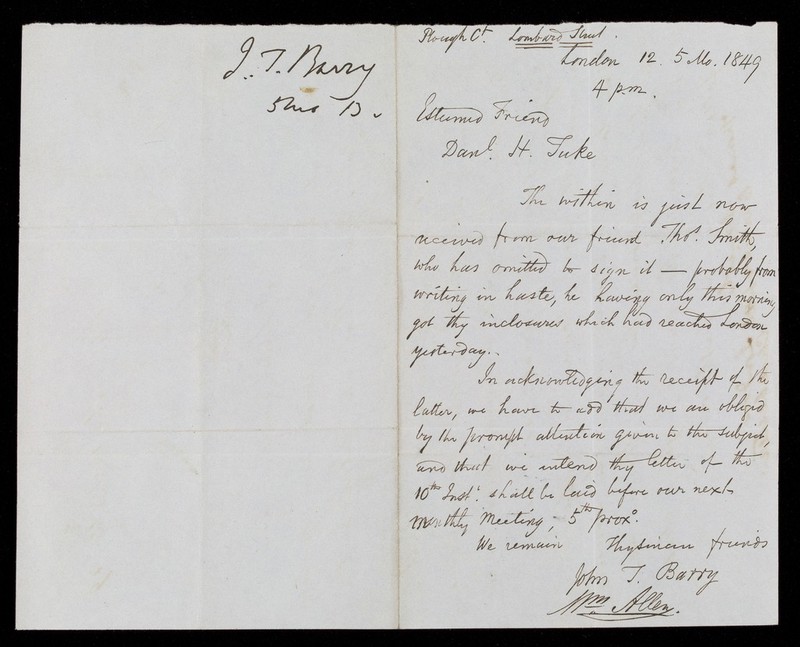 J. T. Barry
5mo 13.
Plough Ct. Lombard Street.
London 12. 5 Mo. 1849
4 p.m.
Esteemed Friend
Danl. H. Tuke
The within is just now
received from our friend Thos. Smith,
who has omitted to sign it — probably from
writing in haste, he having only this morning
got thy inclosures which had reached London
yesterday.
In acknowledging the receipt of the
latter, we have to add that we are obliged
by the prompt attention given to the subject,
and that we intend thy letter of the
10th Inst. shall be laid before our next
monthly Meeting, 5th proxo.
We remain Thy sincere friends
John T. Barry
Wm Allen.